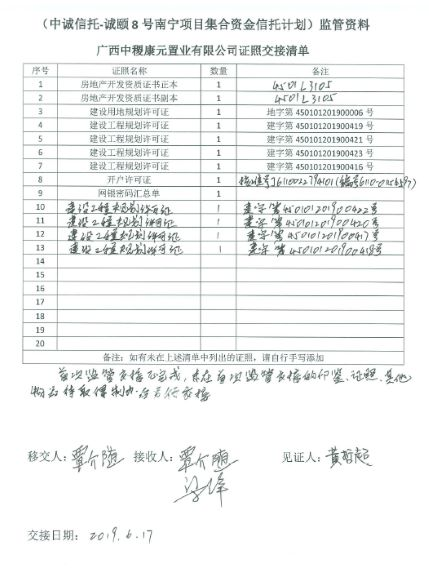 （中诚信托-诚颐8号南宁项目集合资金信托计划）监管资料
广西中稷康元置业有限公司证照交接清单
序号 证照名称 数量 备注
1 房地产开发资质证书正本 1 4501L3105
2 房地产开发资质证书副本 1 4501L3105
3 建设用地规划许可证 1 地字第 450101201900006 号
4 建设工程规划许可证 1 建字第 450101201900419 号
5 建设工程规划许可证 1 建字第 450101201900421 号
6 建设工程规划许可证 1 建字第 450101201900423 号
7 建设工程规划许可证 1 建字第 450101201900416 号
8 开户许可证 1 核准号J6110022794101
9 网银密码汇总单 1
10 建设工程规划许可证 1 建字第450101201900422号
11 建设工程规划许可证 1 建字第450101201900420号
12 建设工程规划许可证 1 建字第450101201900417号
13 建设工程规划许可证 1 建字第450101201900418号
14
15
16
17
18
19
20
备注：如有未在上述清单中列出的证照，请自行手写添加
首次监管交接已完成，未在首次监管交接的印鉴、证照、其他
物品待取得制
另行交接
移交人：覃介随 接收人：覃介随 见证人：黄哲超
交接日期：2019.6.17